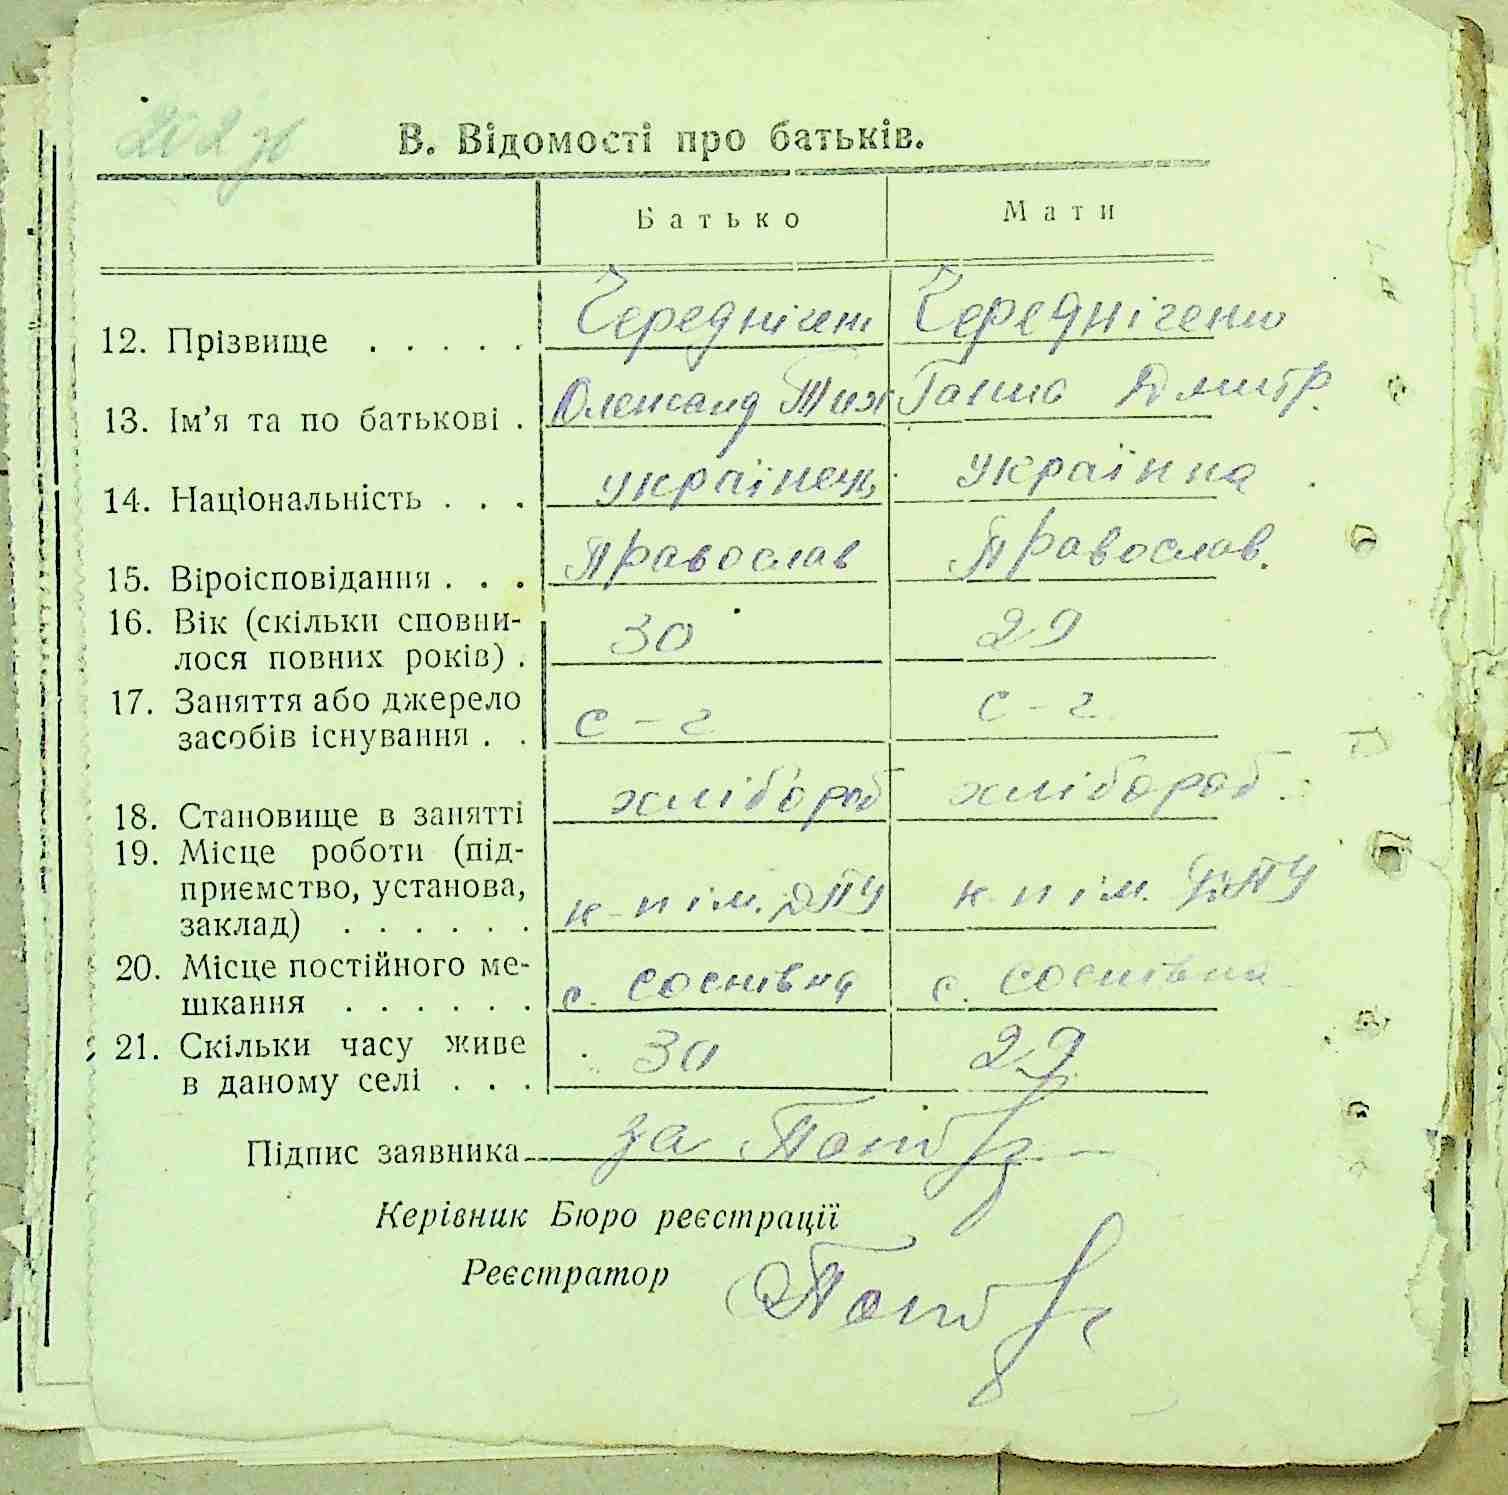 202 зв
В. Відомості про батьків.
Батько Мати
12. Прізвище . . . . . Чередничен Чередніченко
13. Ім'я та по батькові . Олександ Тих Ганна Дмитр.
14. Національність . . . українець українка
15. Віроісповідання . . . Православ Православ.
16. Вік (скільки сповни-
лося повних років) . 30 29
17. Заняття або джерело
засобів існування . . с-г с-г
18. Становище в занятті хлібороб хлібороб.
19. Місце роботи (під-
приємство, установа,
заклад) . . . . . . к-п ім. ДПУ к-п ім. ДПУ
20. Місце постійного ме-
шкання . . . . . . с. соснівка с. соснівка
21. Скільки часу живе
в даному селі . . . 30 29
Підпис заявника за
Керівник Бюро реєстрації
Реєстратор